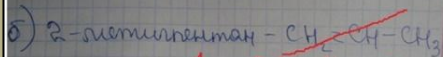 б) 2-метилпентан - CH₂=CH-CH₃